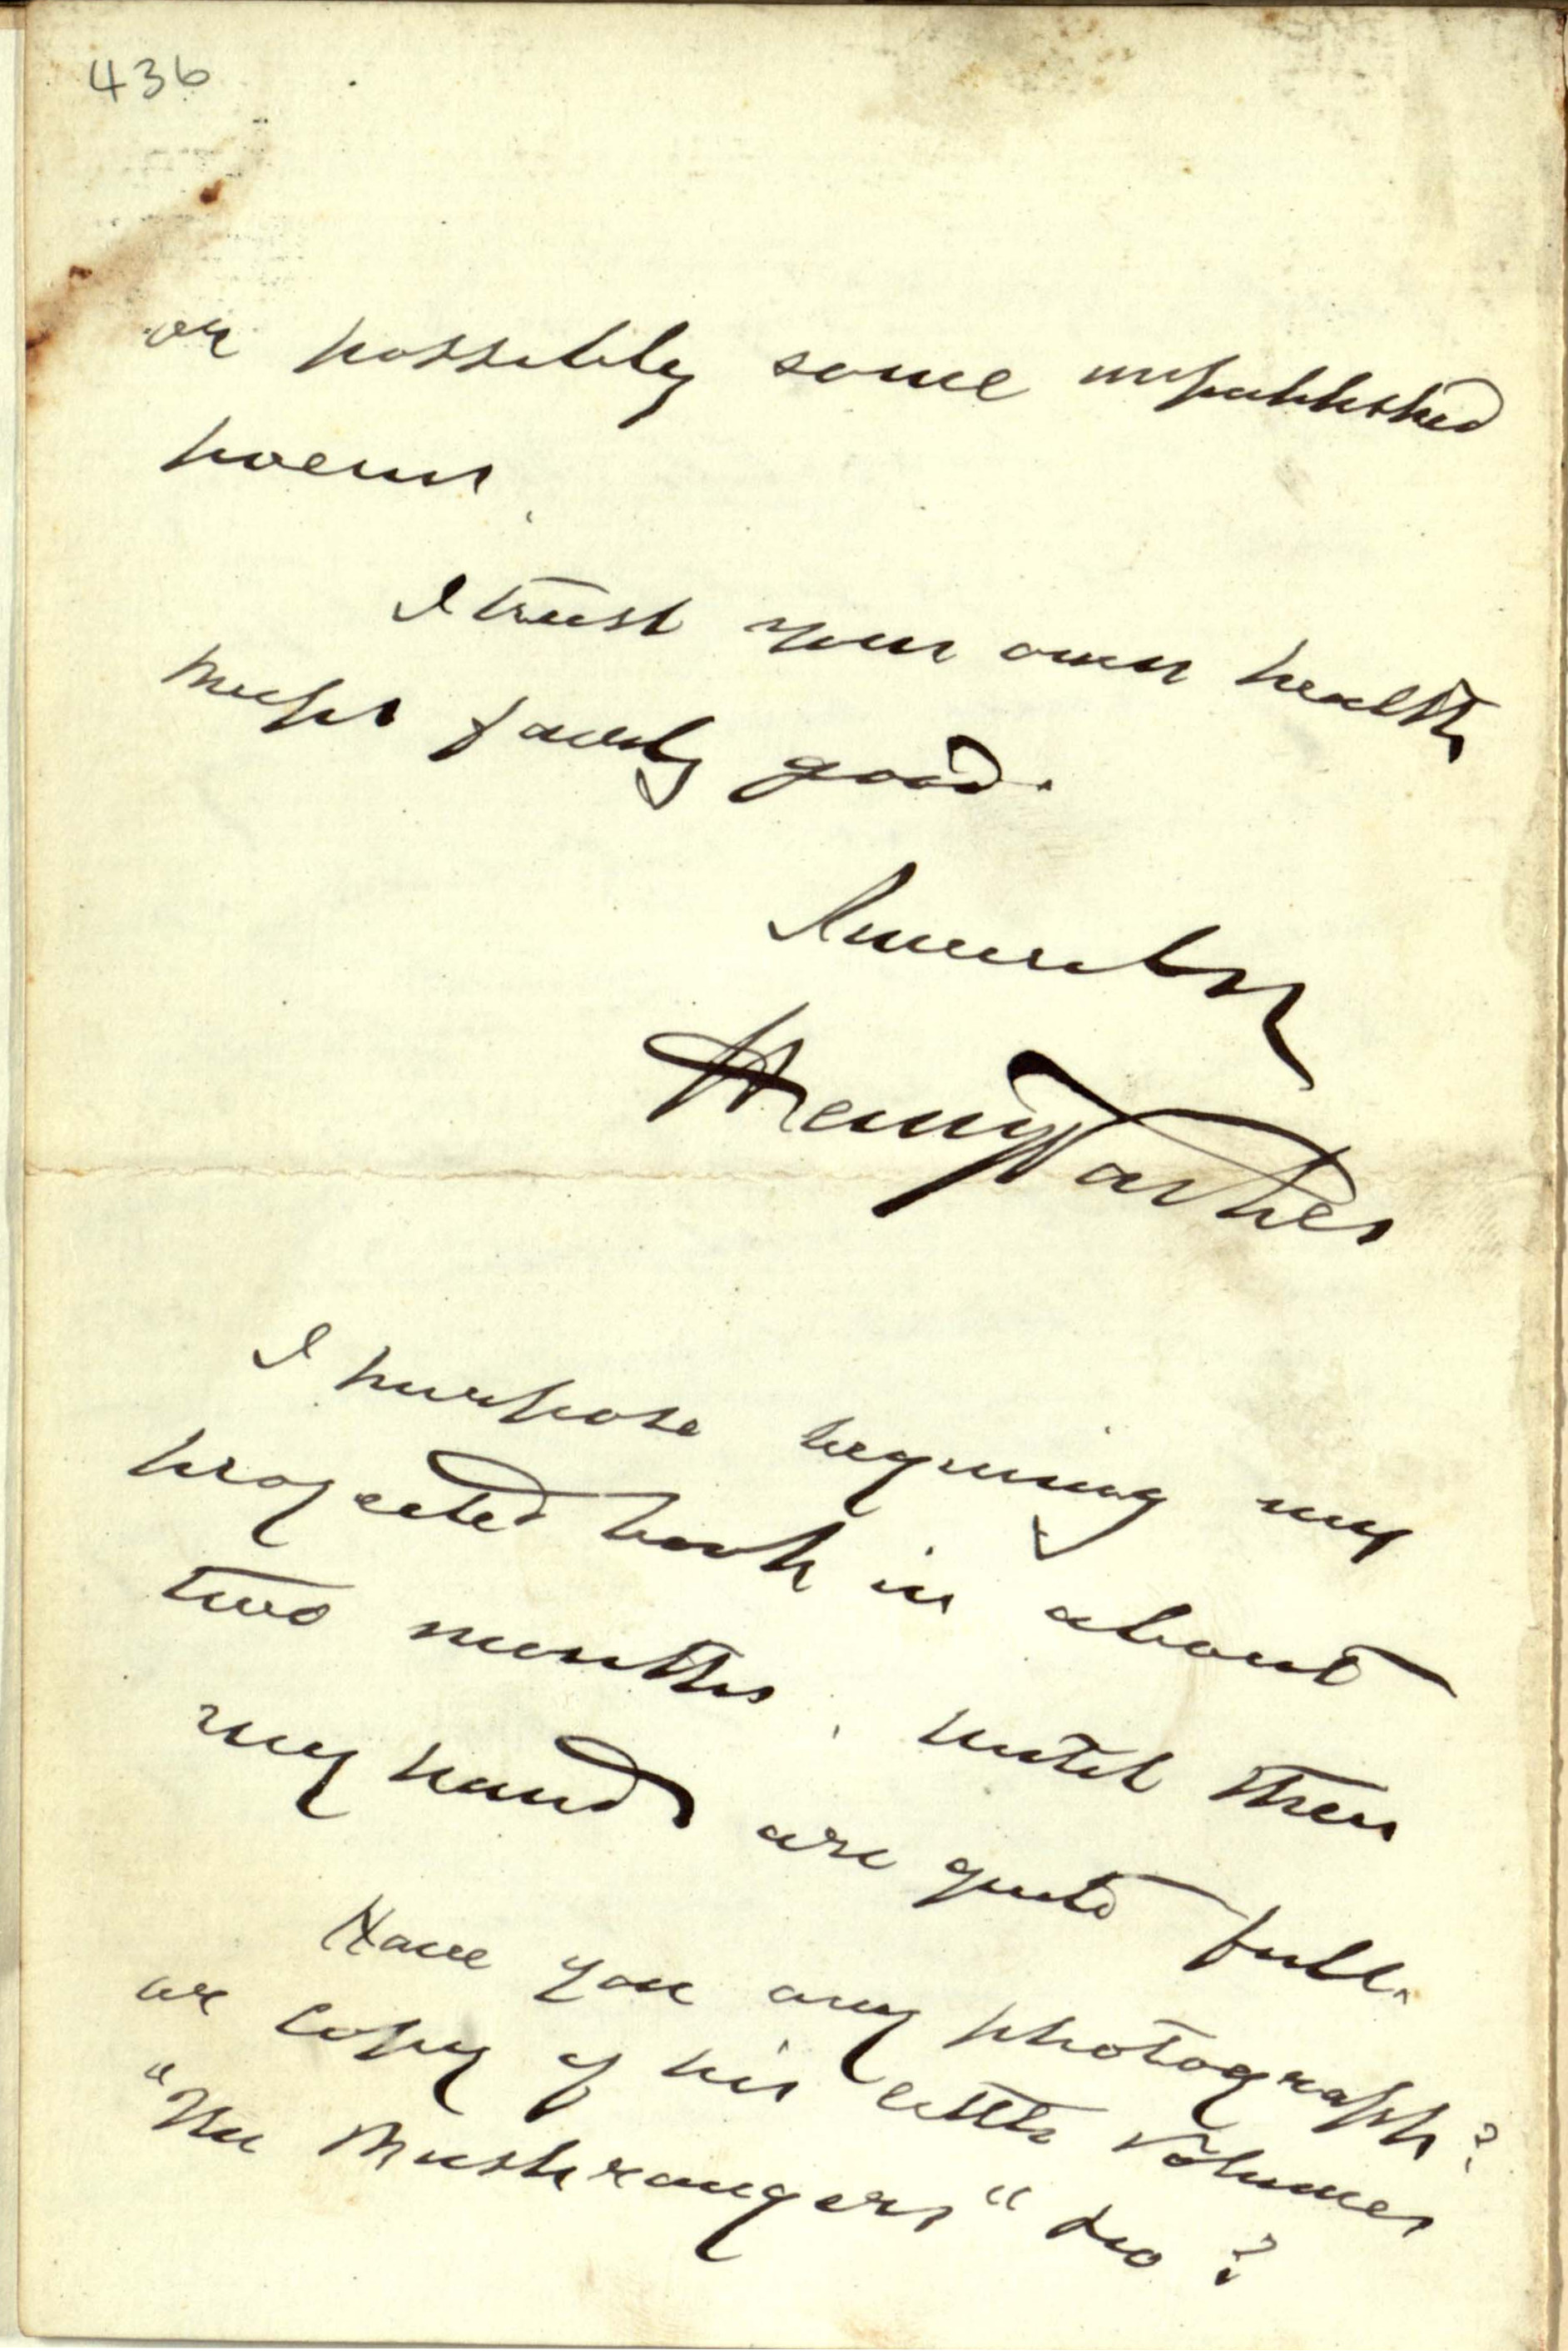 436
or possibly some unpublished
poems.
I trust your own health
keeps fairly good.
Henry Parkes
I purpose begining my
projected book in about
two months, until then
my hands are quite full.
Have you any photograph?
or copy of his little volumes
"The Bushrangers" &c?